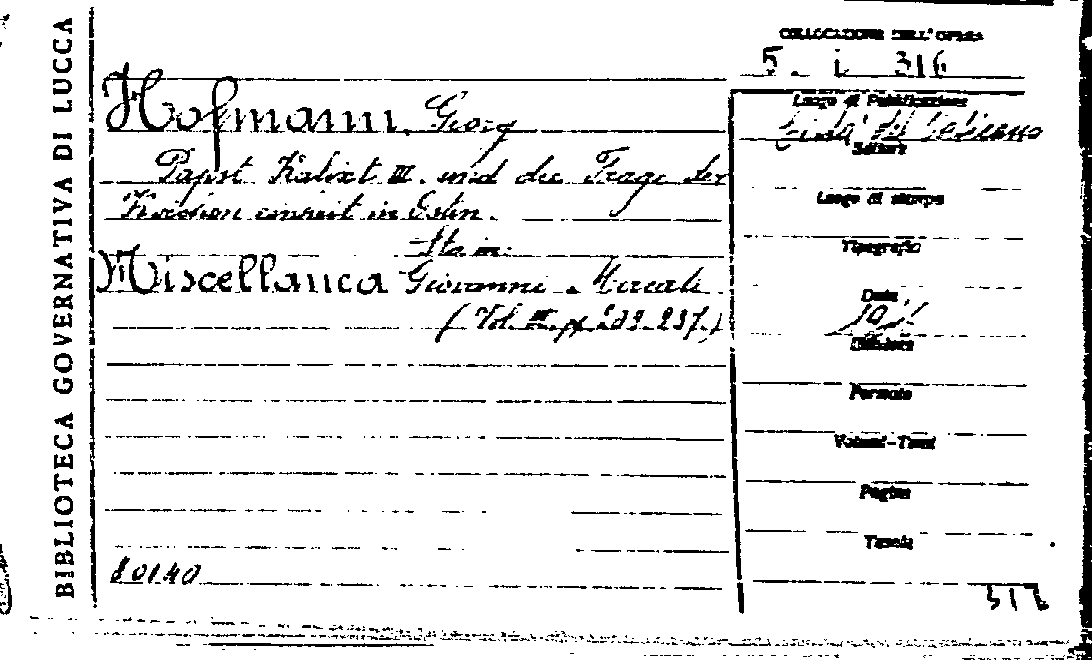 BIBLIOTECA GOVERNATIVA DI LUCCA
COLLOCAZIONE DELL'OPERA
5. i 316
Hofmann, Georg
Papst Kalixt III. und die Frage der
in
Sta in:
Miscellanea Giovanni Mercati
(Vol. III. p. 237.)
Luogo di Pubblicazione
Città del Vaticano
Editore
Luogo di stampa
Tipografia
Data
Edizione
Formato
Volumi-Tomi
Pagine
Tavole
80140